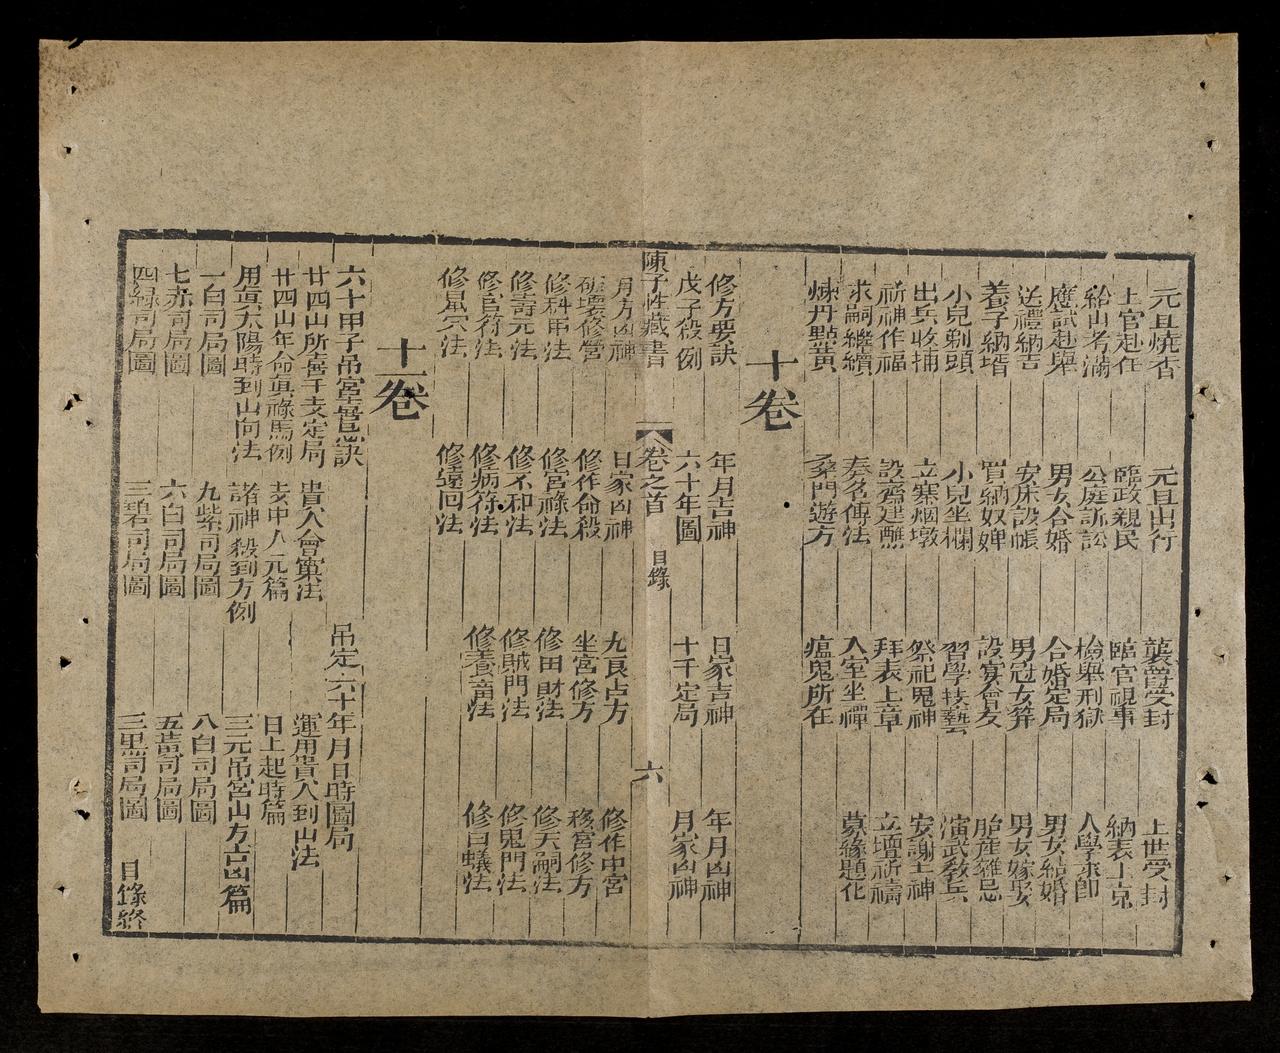 元旦燒香 元旦出行 襲爵受封 上世受封
上官赴任 臨政親民 臨官視事 納表上京
給由考滿 公庭訴訟 檢舉刑獄 入學求師
應試赴舉 男女合婚 合婚定局 男女結婚
送禮納吉 安床設帳 男冠女笄 男女嫁娶
養子納壻 買納奴婢 設宴會友 胎產雜忌
小兒剃頭 小兒坐欄 習學技藝 演武敎兵
出兵收捕 立寨烟墩 祭祀鬼神 安謝土神
祈神作福 設齋建醮 拜表上章 立壇祈禱
求嗣繼續 奏名傳法 入室坐禪 募緣題化
煉丹點黃 桑門遊方 瘟鬼所在
十卷
修方要訣 年月吉神 日家吉神 年月凶神
戊子殺例 六十年圖 十干定局 月家凶神
陳子性藏書 卷之首 目錄 六
月方凶神 日家凶神 九良占方 修作中宮
破壞修營 修作命殺 坐宮修方 移宮修方
修科甲法 修宮祿法 修田財法 修天嗣法
修壽元法 修不和法 修賊門法 修鬼門法
修官符法 修病符法 修養畜法 修白蟻法
修鼠穴法 修遠回法
十一卷
六十甲子吊宮定訣 吊定六十年月日時圖局
廿四山所喜干支定局 貴人會窠法 運用貴人到山法
廿四山年命眞祿馬例 支中八元篇 日上起時篇
用眞太陽時到山向法 諸神殺到方例 三元吊宮山方吉凶篇
一白司局圖 九紫司局圖 八白司局圖
七赤司局圖 六白司局圖 五黃司局圖
四綠司局圖 三碧司局圖 二黑司局圖 目錄終